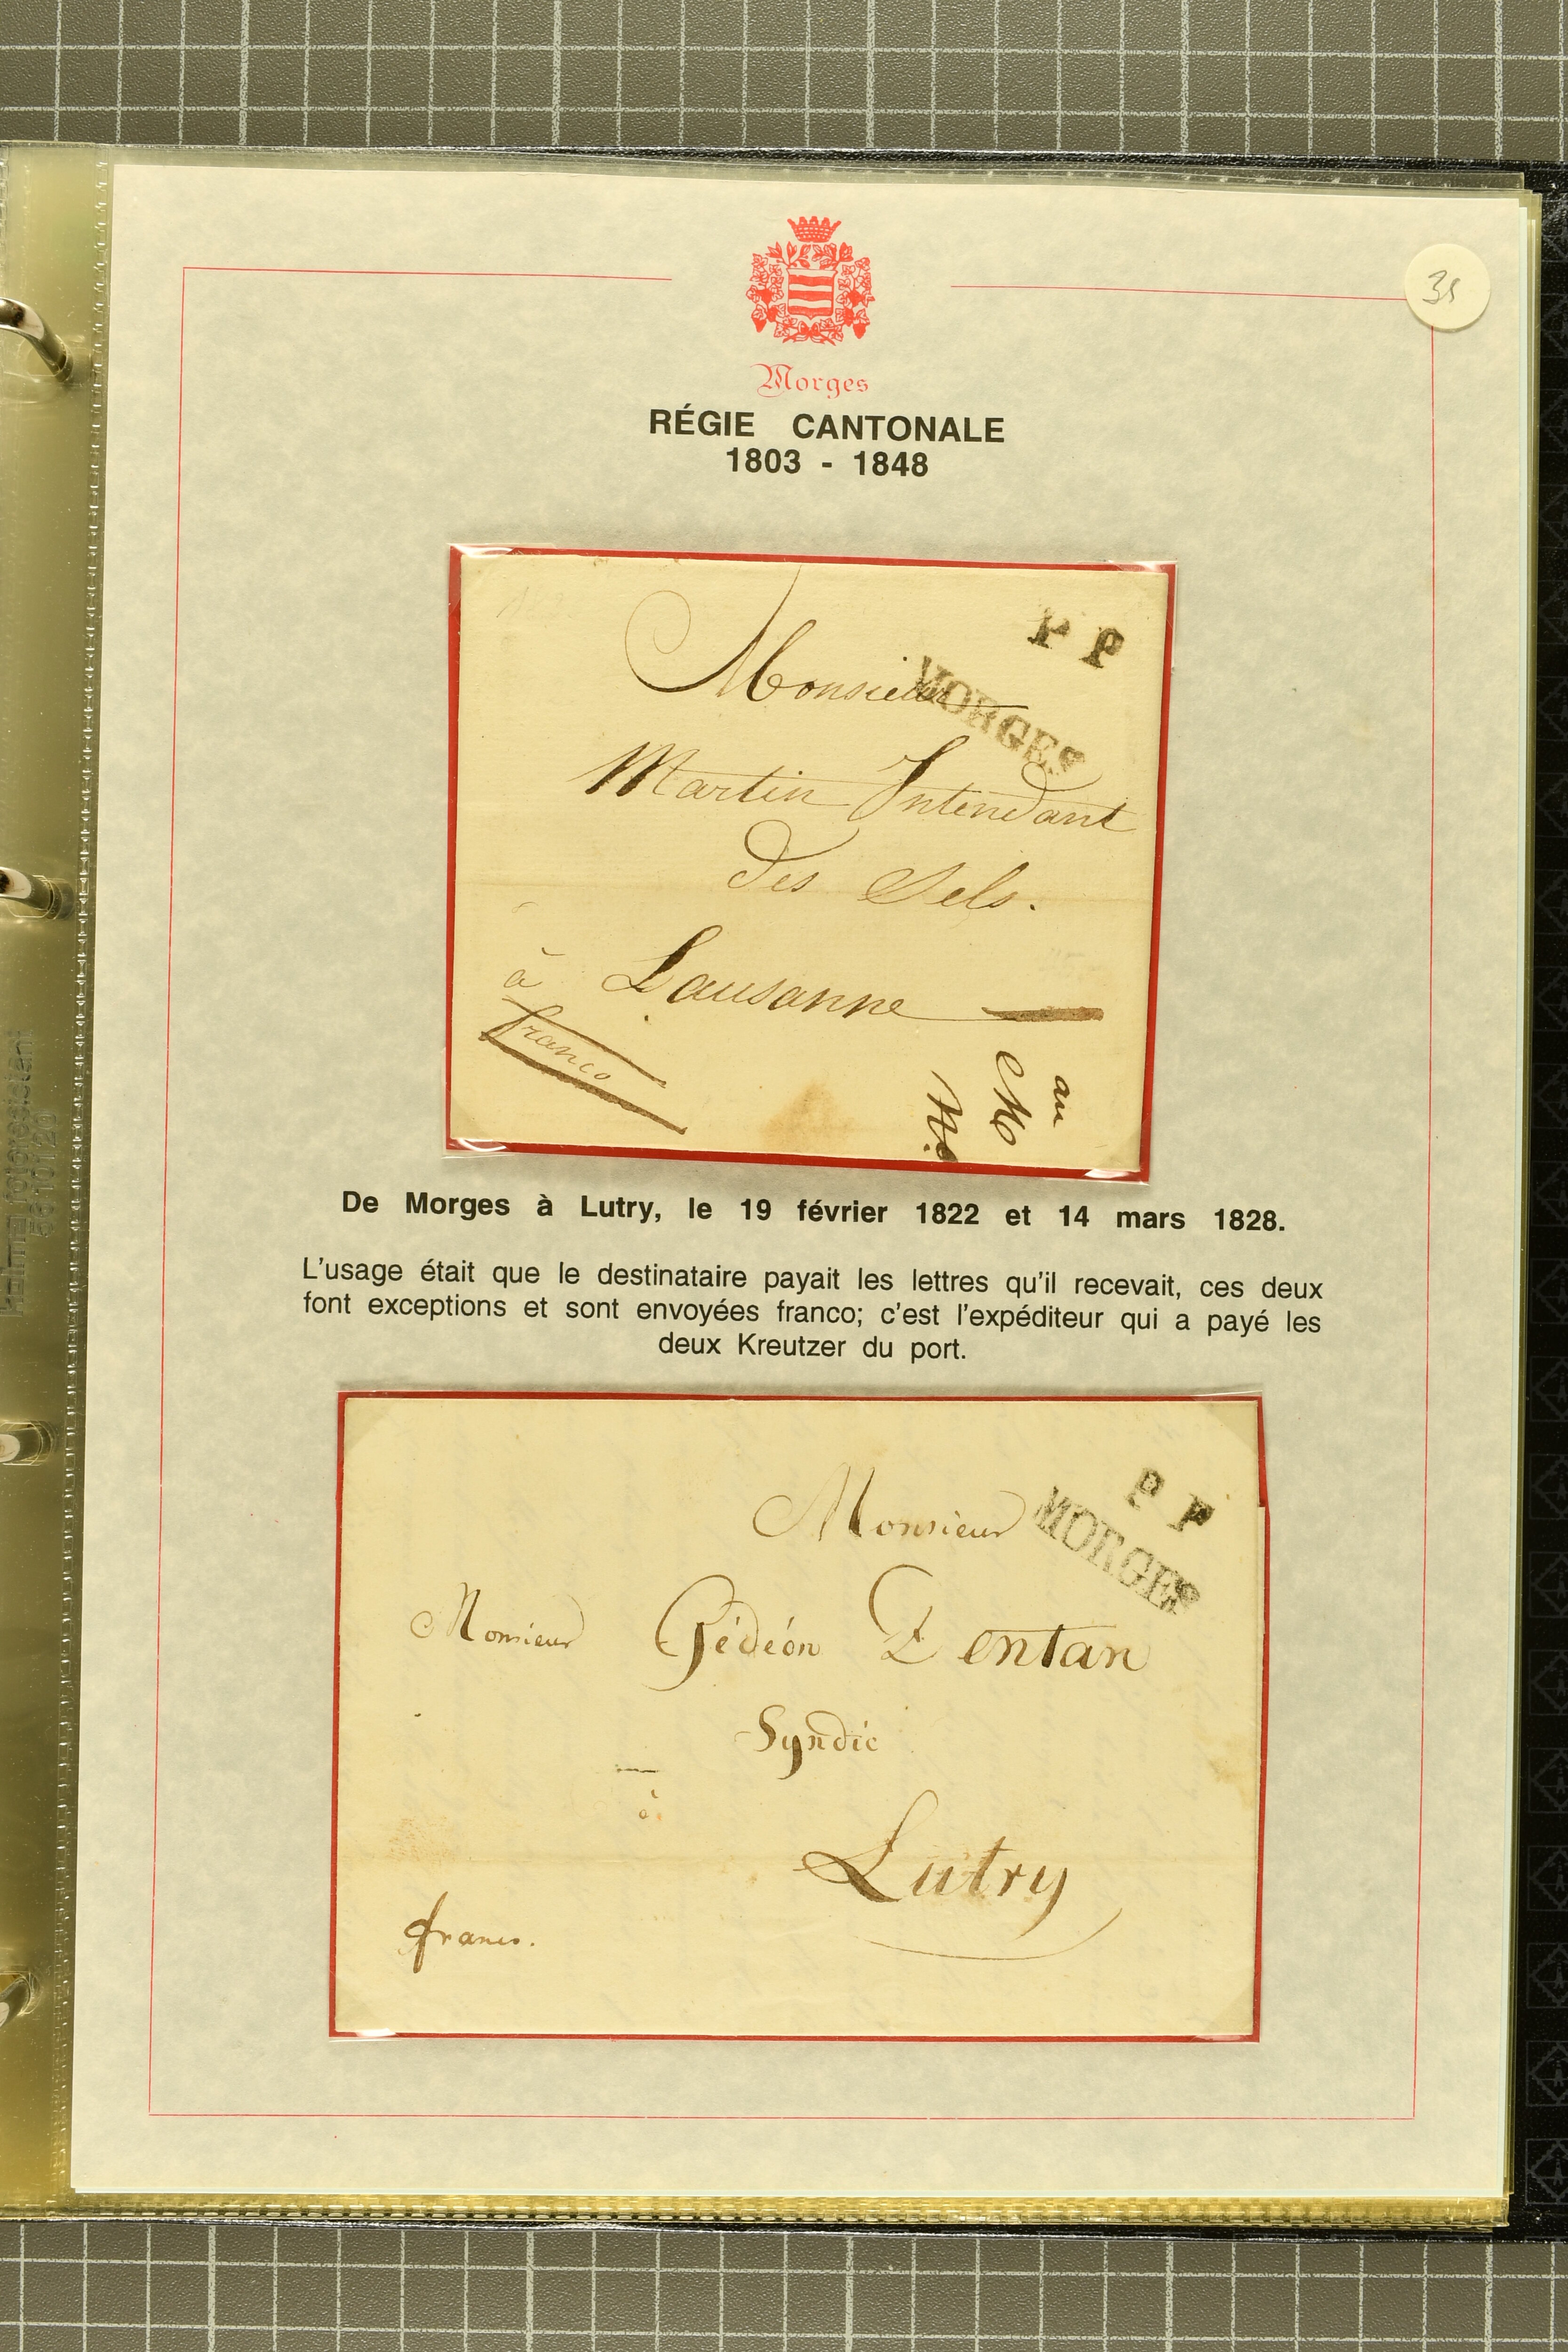 35
Morges
RÉGIE CANTONALE
1803 - 1848
P P
MORGES
Monsieur
Martin Intendant
des Sels.
à Lausanne
franco
au
De Morges à Lutry, le 19 février 1822 et 14 mars 1828.
L'usage était que le destinataire payait les lettres qu'il recevait, ces deux
font exceptions et sont envoyées franco; c'est l'expéditeur qui a payé les
deux Kreutzer du port.
P P
MORGES
Monsieur
Monsieur Gédéon Dentan
Syndic
à
Lutry
franco.